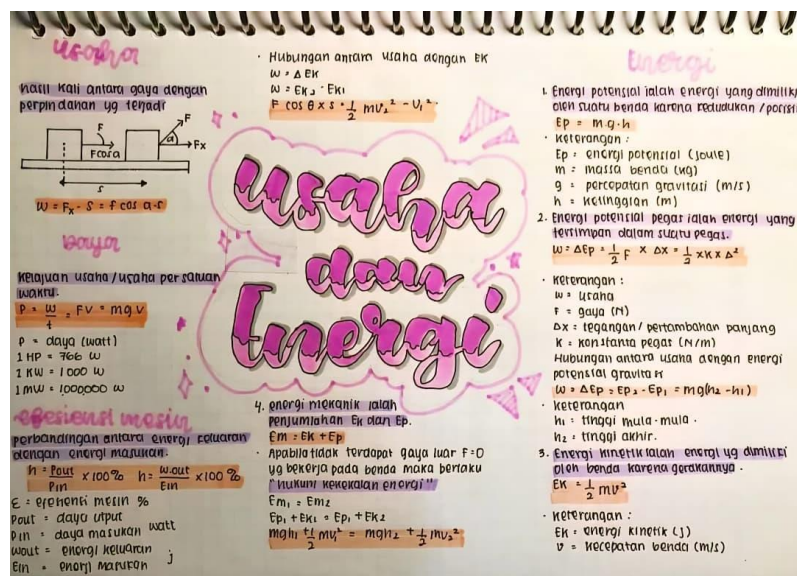 usaha
hasil kali antara gaya dengan
perpindahan yg terjadi
F
F cos a
F
a
Fx
s
W = Fx - S = f cos a . s
Daya
Kelajuan usaha / usaha per satuan
waktu.
P = W/t = FV = mg.V
P = daya (watt)
1 HP = 766 W
1 KW = 1000 W
1 MW = 1000000 W
efesiensi mesin
perbandingan antara energi keluaran
dengan energi masukan.
h = Pout/Pin x 100% h = W.out/Ein x 100%
E = efesiensi mesin %
Pout = daya utput
Pin = daya masukan watt
Wout = energi keluaran
Ein = energi masukan j
· Hubungan antara usaha dengan EK
W = Δ EK
W = EK2 - EK1
F cos θ x s = 1/2 mV2² - V1²
usaha
dan
Energi
4. energi mekanik ialah
penjumlahan Ek dan Ep.
Em = EK + Ep
· Apabila tidak terdapat gaya luar F=0
yg bekerja pada benda maka berlaku
"hukum kekekalan energi"
Em1 = Em2
Ep1 + EK1 = Ep1 + EK2
mgh1 + 1/2 mv1² = mgh2 + 1/2 mv2²
Energi
1. Energi potensial ialah energi yang dimiliki
oleh suatu benda karena kedudukan / posisi
Ep = m.g.h
· Keterangan :
Ep = energi potensial (joule)
m = massa benda (kg)
g = percepatan gravitasi (m/s)
h = ketinggian (m)
2. Energi potensial pegas ialah energi yang
tersimpan dalam suatu pegas.
W = ΔEp = 1/2 F x Δx = 1/2 x K x Δ²
· Keterangan :
W = usaha
F = gaya (N)
Δx = tegangan / pertambahan panjang
K = konstanta pegas (N/m)
Hubungan antara usaha dengan energi
potensial gravitasi
W = ΔEp = Ep2 - Ep1 = mg(h2 - h1)
· Keterangan
h1 = tinggi mula-mula.
h2 = tinggi akhir.
3. Energi kinetik ialah energi yg dimiliki
oleh benda karena gerakannya.
EK = 1/2 mv²
· Keterangan :
EK = energi kinetik (j)
v = kecepatan benda (m/s)